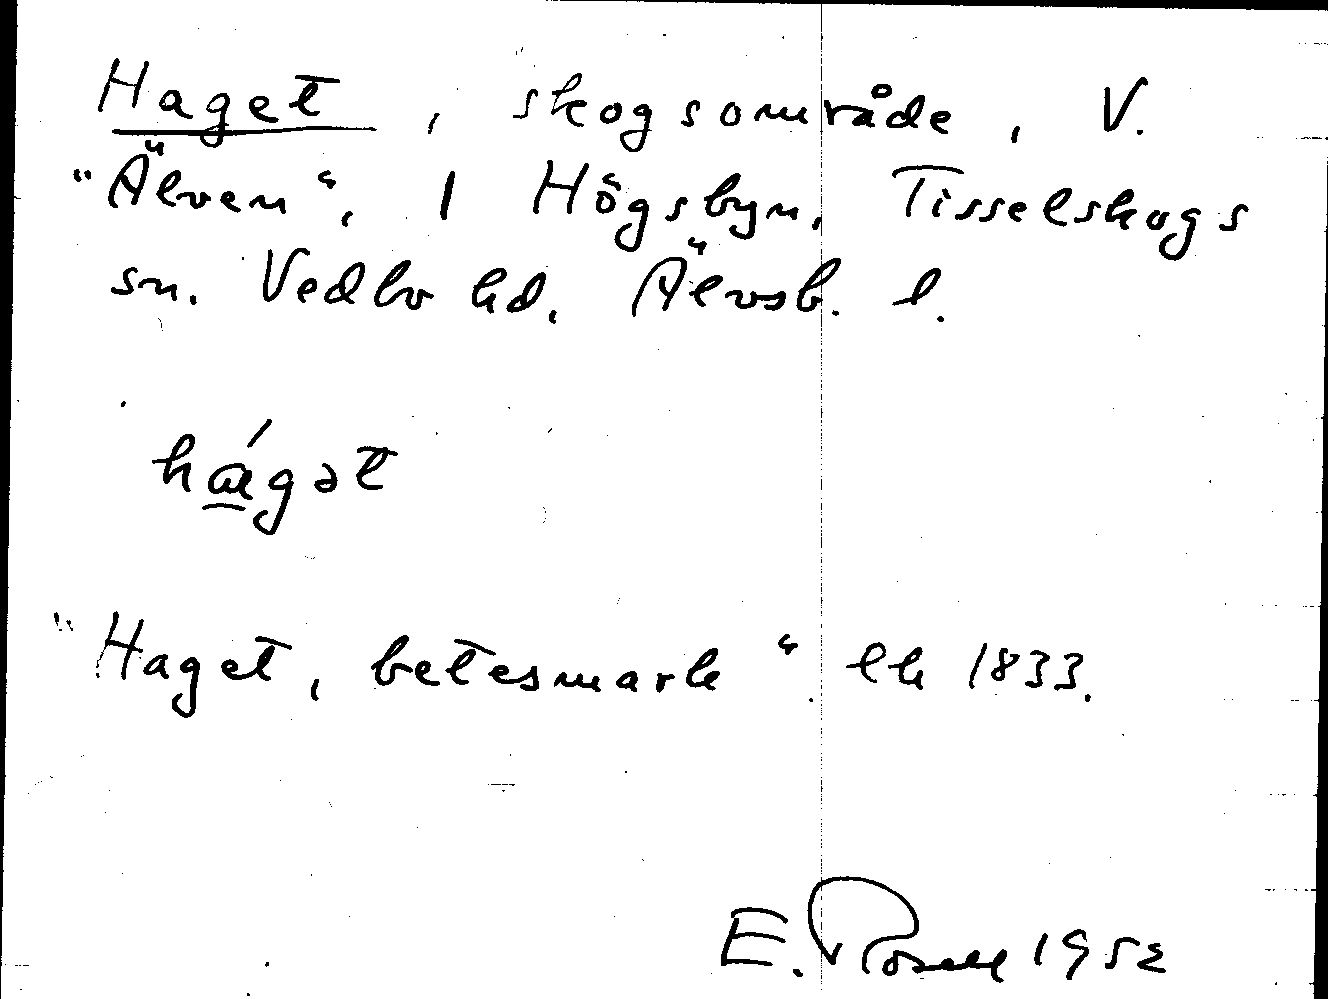 Haget, skogsområde, V.
"Älven", 1 Högsbyn, Tisselskogs
sn. Vedbo hd. Älvsb. l.
hágət
"Haget, betesmark". lk 1833.
E. Rosell 1952